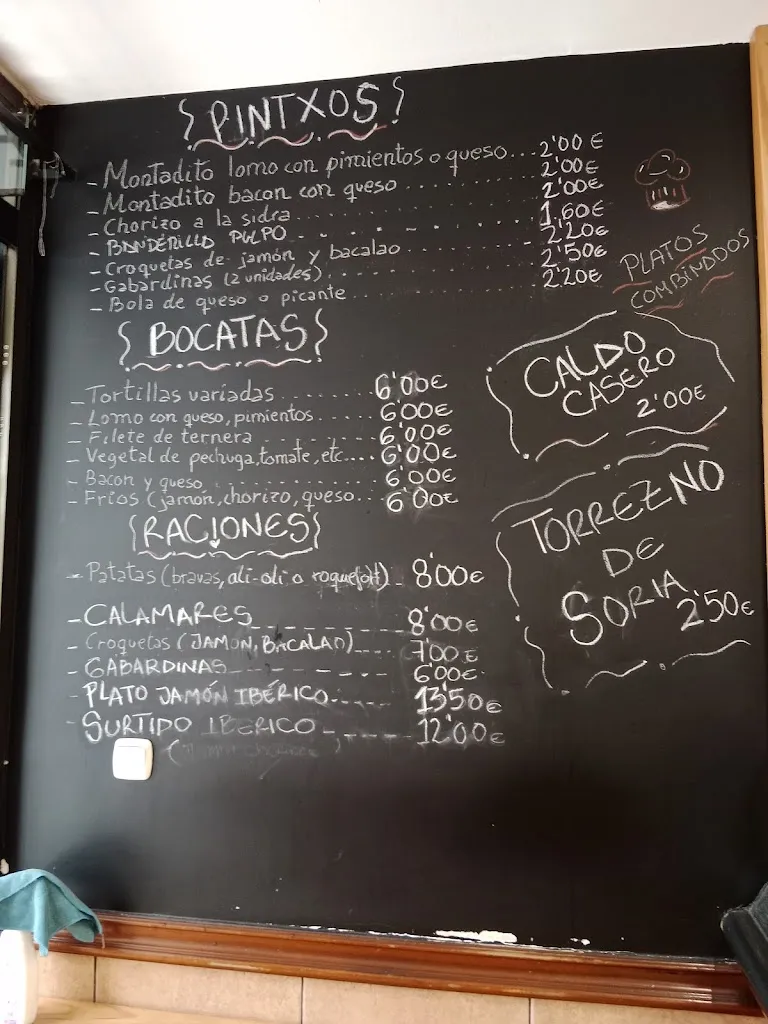 PINTXOS
- Montadito lomo con pimientos o queso... 2'00€
- Montadito bacon con queso ........ 2'00€
- Chorizo a la sidra .......... 2'00€
- BANDERILLA PULPO - - - - - 1,60€
- Croquetas de jamón y bacalao ........ 2'20€
- Gabardinas (2 unidades) .......... 2'50€
- Bola de queso o picante .......... 2'20€
PLATOS
COMBINADOS
BOCATAS
- Tortillas variadas ........ 6'00€
- Lomo con queso, pimientos ..... 6'00€
- Filete de ternera ......... 6'00€
- Vegetal de pechuga, tomate, etc... 6'00€
- Bacon y queso .......... 6'00€
- Fríos (jamón, chorizo, queso... 6'00€
CALDO
CASERO
2'00€
RACIONES
- Patatas (bravas, ali-oli o roquefort) - 8'00€
- CALAMARES - - - - - 8'00€
- Croquetas (JAMÓN, BACALAO) - - - - 7'00€
- GABARDINAS - - - - - 6'00€
- PLATO JAMÓN IBÉRICO - - - - 13'50€
- SURTIDO IBERICO - - - - - 12'00€
TORREZNO
DE
SORIA
2'50€